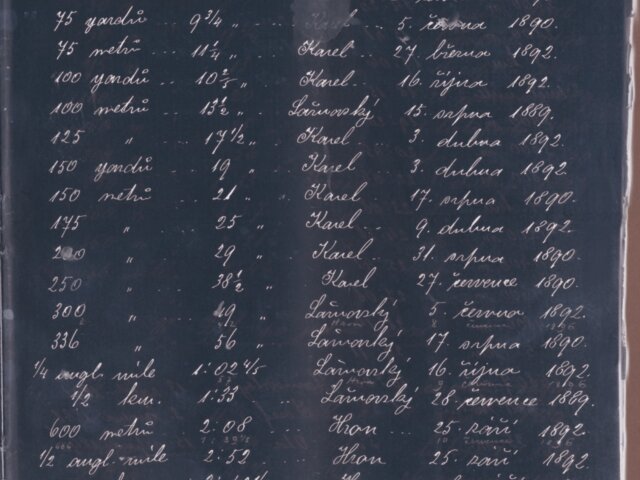 75 yardů .. 9 3/4 „ ... Karel .. 5. června 1890.
75 metrů .. 11 1/4 „ ... Karel ... 27. března 1892.
100 yardů .. 10 2/5 „ ... Karel .. 16. října 1892.
100 metrů .. 13 1/2 „ .. Lašňovský 15. srpna 1889.
125 „ .. 17 1/2 „ .. Karel .. 3. dubna 1892.
150 yardů .. 19 „ .. Karel .. 3. dubna 1892
150 metrů .. 21 „ .. Karel .. 17. srpna 1890.
175 „ .. 25 „ .. Karel .. 9. dubna 1892.
200 „ .. 29 „ .. Karel .. 31. srpna 1890.
250 „ .. 38 1/2 „ .. Karel 27. července 1890.
300 „ 49 „ .. 5. června 1892.
336 „ 56 „ .. 17. srpna 1890.
1/4 angl. mile 1:02 4/5 .. 16. října 1892.
1/2 km. 1:33 .. 28. července 1889.
600 metrů .. 2:08 .... Hron .. 25. září 1892.
1/2 angl. mile 2:52 .... Hron .. 25. září 1892.